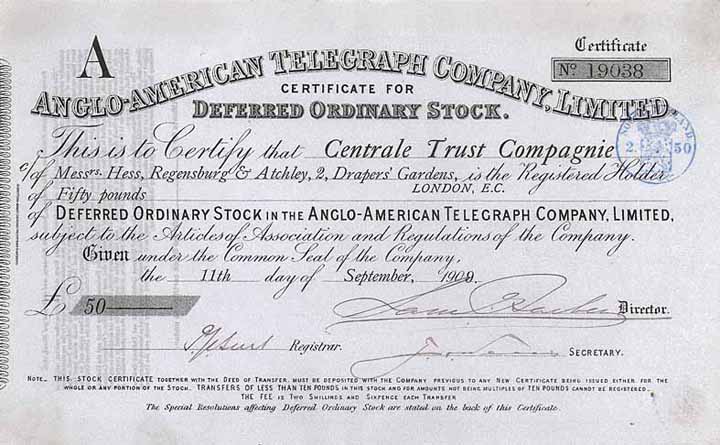 A
Certificate
No 19038
ANGLO-AMERICAN TELEGRAPH COMPANY, LIMITED
CERTIFICATE FOR
DEFERRED ORDINARY STOCK.
This is to Certify that Centrale Trust Compagnie
c/o of Messrs. Hess, Regensburg & Atchley, 2, Drapers' Gardens, is the Registered Holder
of Fifty pounds LONDON, E.C.
of DEFERRED ORDINARY STOCK IN THE ANGLO-AMERICAN TELEGRAPH COMPANY, LIMITED,
subject to the Articles of Association and Regulations of the Company.
Given under the Common Seal of the Company,
the 11th day of September, 1909.
£ 50
Director.
Registrar.
SECRETARY.
NOTE. THIS STOCK CERTIFICATE TOGETHER WITH THE DEED OF TRANSFER, MUST BE DEPOSITED WITH THE COMPANY PREVIOUS TO ANY NEW CERTIFICATE BEING ISSUED EITHER FOR THE
WHOLE OR ANY PORTION OF THE STOCK. TRANSFERS OF LESS THAN TEN POUNDS IN THIS STOCK AND FOR AMOUNTS NOT BEING MULTIPLES OF TEN POUNDS CANNOT BE REGISTERED.
THE FEE IS TWO SHILLINGS AND SIXPENCE EACH TRANSFER
The Special Resolutions affecting Deferred Ordinary Stock are stated on the back of this Certificate.
2. 50